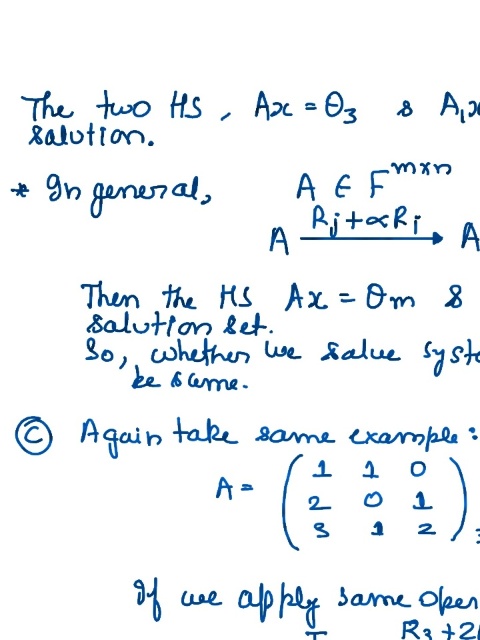 The two HS, Ax = θ₃ & A₁x
solution.
* In general, A ∈ F^{m×n}
A \xrightarrow{R_j + αR_i} A
Then the HS Ax = θm &
solution set.
So, whether we solve syste
be same.
Ⓒ Again take same example:
A = \begin{pmatrix} 1 & 1 & 0 \\ 2 & 0 & 1 \\ 3 & 1 & 2 \end{pmatrix}
If we apply same oper
R₃ + 2